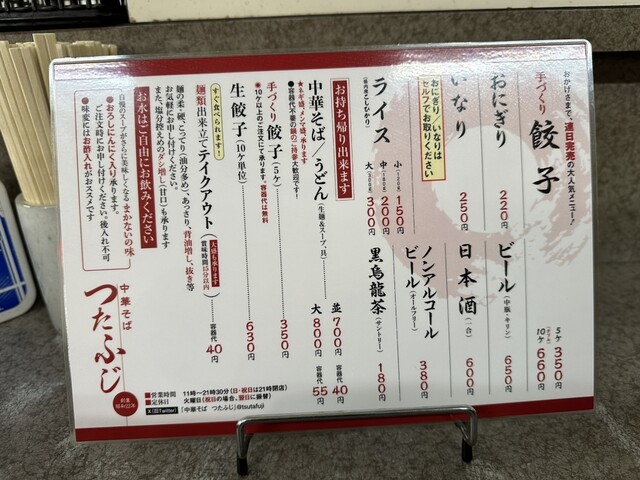 おかげさまで、連日完売の大人気メニュー!
手づくり 餃子
5ケ 350円
10ケ 660円
おにぎり 220円
いなり 250円
おにぎり/いなりは
セルフでお取りください
ビール(中瓶・キリン) 650円
日本酒(一合) 600円
ノンアルコール
ビール(オールフリー) 380円
黒烏龍茶(サントリー) 180円
ライス
小 150円
中 200円
大 300円
お持ち帰り出来ます
中華そば/うどん(生麺&スープ、具)
並 700円 容器代 40円
大 800円 容器代 55円
★ネギ盛、メンマ盛、承ります
●容器代不要の鍋のご持参大歓迎です!
手づくり 餃子(5ケ) 350円
※10ケ以上のご注文にて承ります。容器代は無料
生餃子(10ケ単位) 630円
すぐ食べられます!
麺類出来立てテイクアウト(大盛も承ります 賞味時間15分以内) 容器代 40円
麺の柔・硬、こってり(油分多め)、あっさり、背油増し、抜き等
お気軽にお申し付けください。
また、塩分控えめのダシ増し(甘口)も承ります
お水はご自由にお飲みください
自慢のスープがさらに美味しくなる まかないの味
●おろしにんにく入り承ります。
ご注文時にお申し付けください。後入れ不可
●味変にはお酢入れがおススメです
中華そば
つたふじ
創業
昭和22年
■営業時間 11時~21時30分(日・祝日は21時閉店)
■定休日 火曜日(祝日の場合、翌日に振替)
X(旧Twitter) 「中華そば つたふじ」@tsutafuji